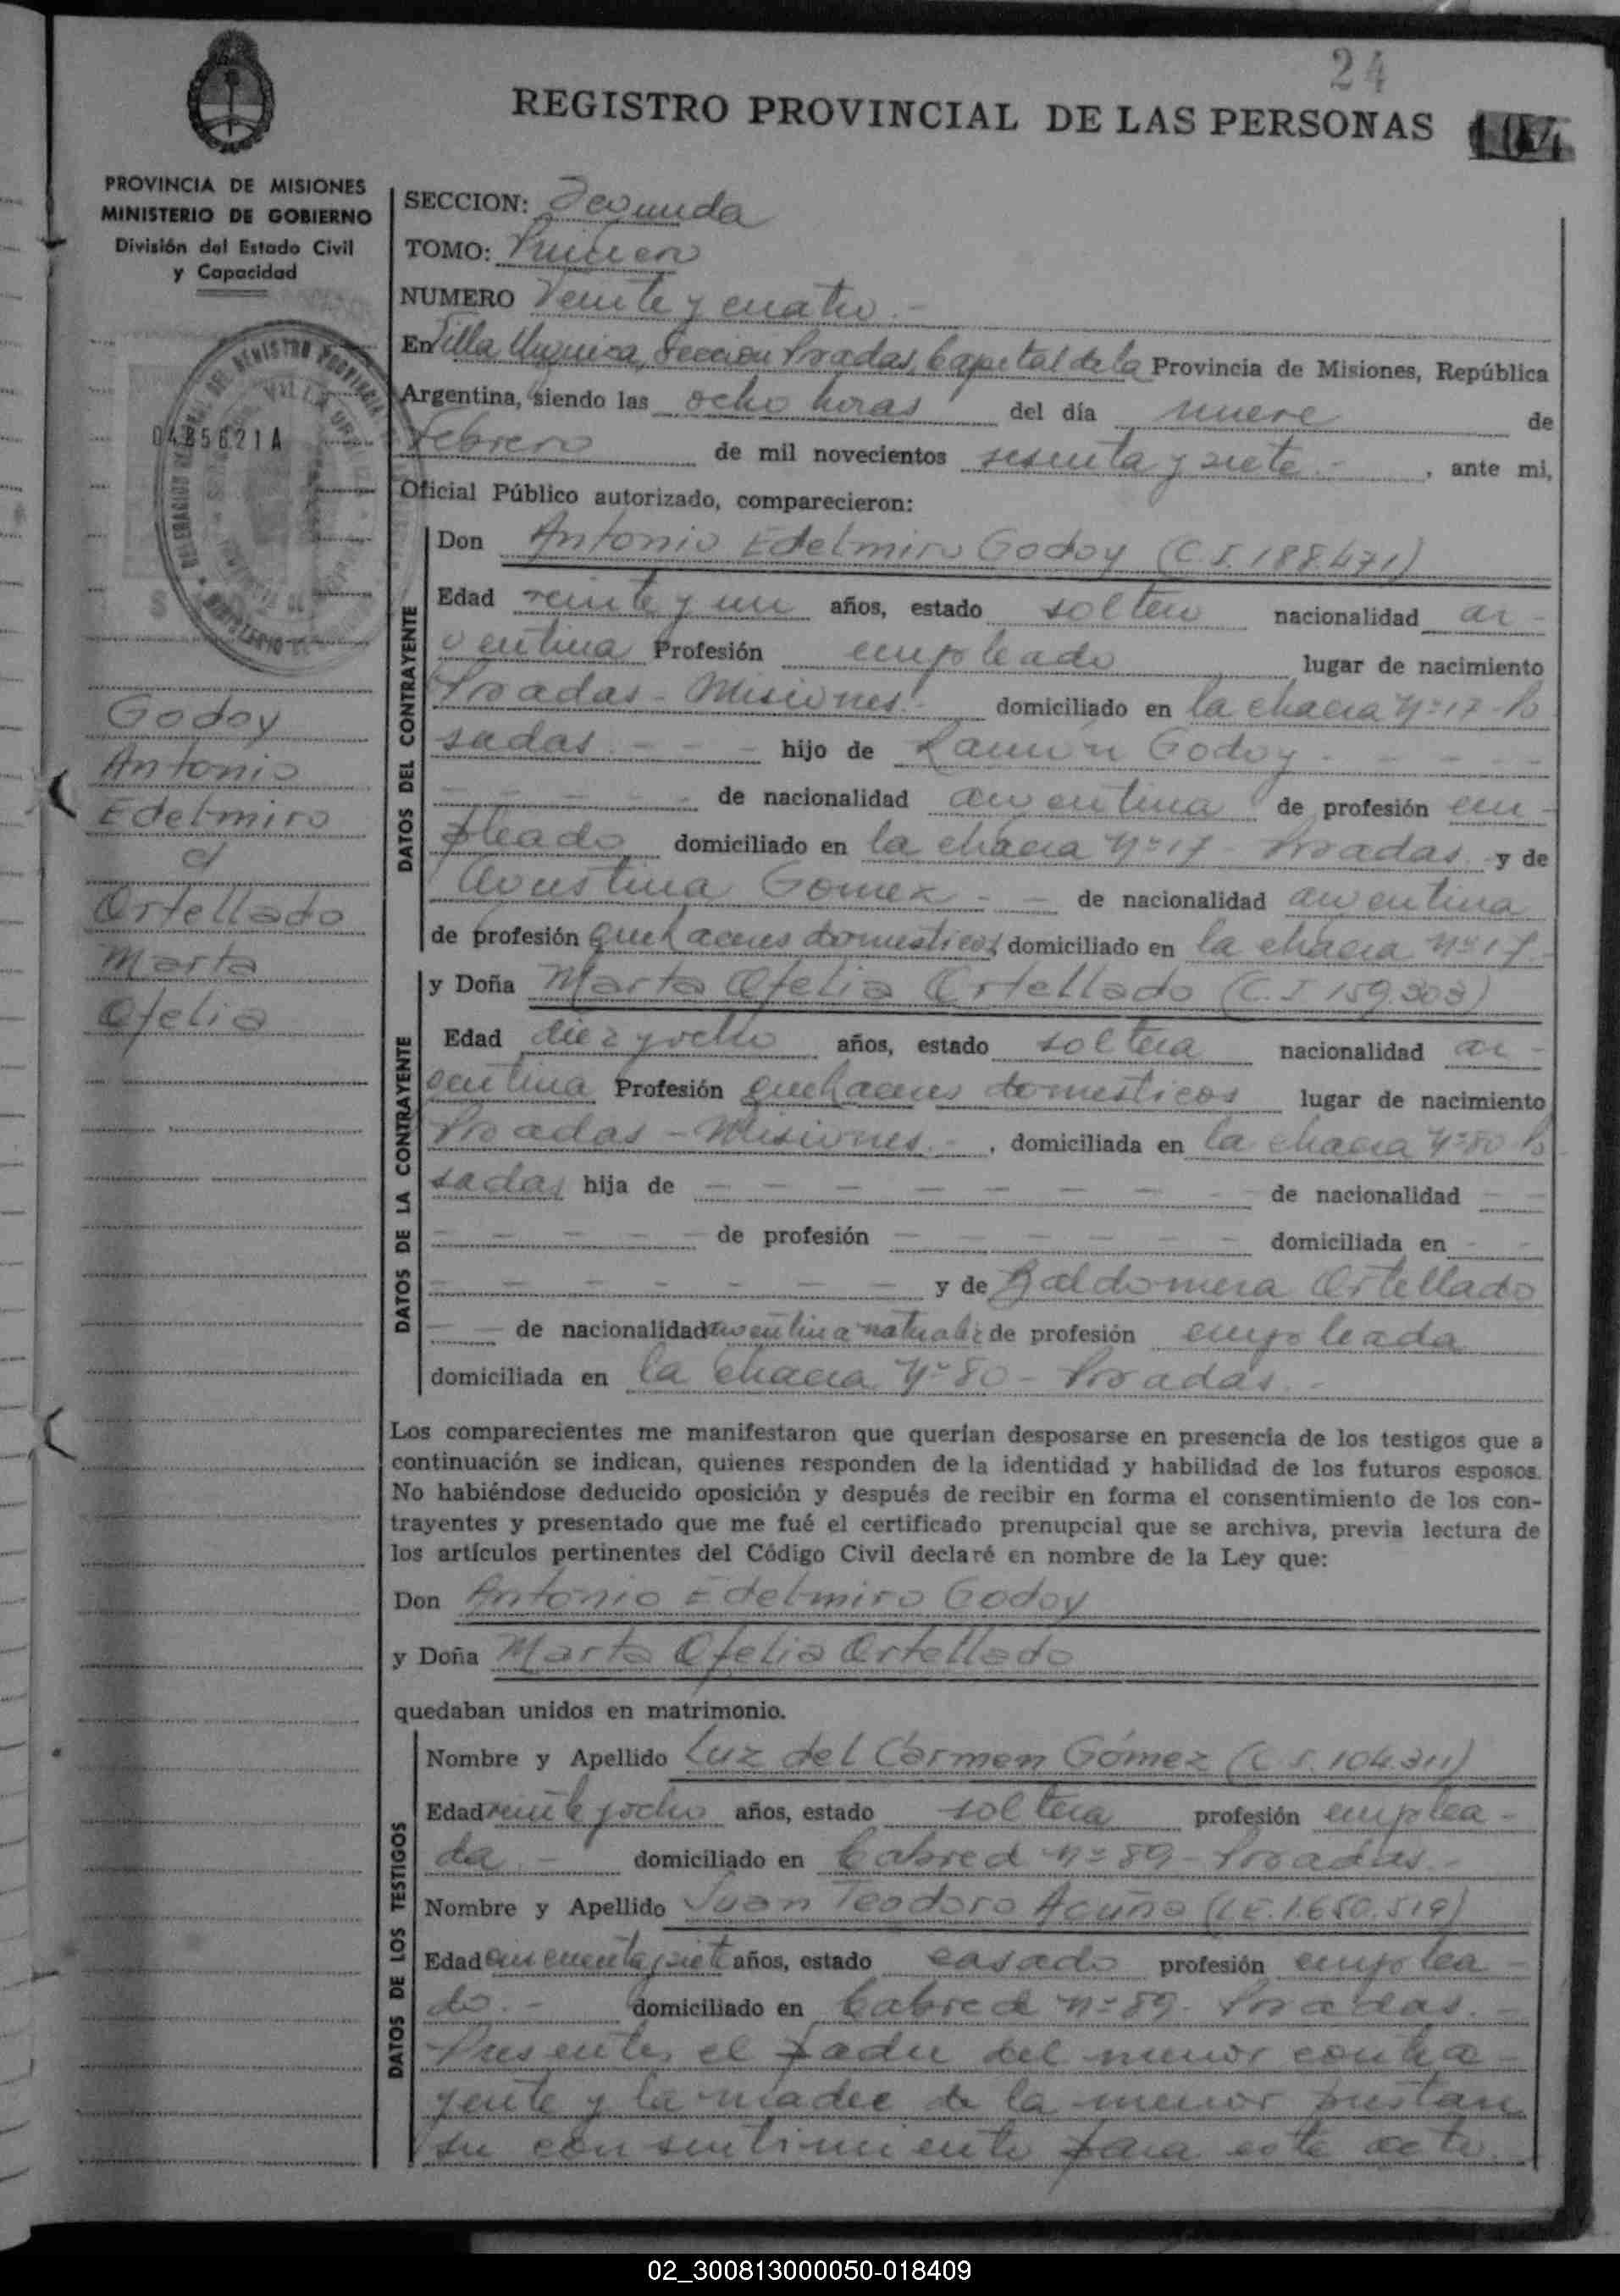 24
REGISTRO PROVINCIAL DE LAS PERSONAS 104
PROVINCIA DE MISIONES
MINISTERIO DE GOBIERNO
División del Estado Civil
y Capacidad
0485621A
Godoy
Antonio
Edelmiro
Ortellado
Marta
Ofelia
SECCION: Segunda
TOMO: Primero
NUMERO Veinte y cuatro.-
En Villa Urquiza, Sección Posadas, Capital de la Provincia de Misiones, República
Argentina, siendo las ocho horas del día nueve de
Febrero de mil novecientos sesenta y siete.- , ante mi,
Oficial Público autorizado, comparecieron:
DATOS DEL CONTRAYENTE
Don Antonio Edelmiro Godoy (C.I. 188.471)
Edad veinte y un años, estado soltero nacionalidad ar-
gentina Profesión empleado lugar de nacimiento
Posadas - Misiones.- domiciliado en la chacra Nº 17 - Po
sadas. - - - hijo de Ramón Godoy - - - - -
- - - - - - de nacionalidad argentina de profesión em-
pleado domiciliado en la chacra Nº 17 Posadas y de
Agustina Gomez - - de nacionalidad argentina
de profesión quehaceres domesticos domiciliado en la chacra Nº 17.-
DATOS DE LA CONTRAYENTE
y Doña Marta Ofelia Ortellado (C.I 159.303)
Edad diez y ocho años, estado soltera nacionalidad ar-
gentina Profesión quehaceres domesticos lugar de nacimiento
Posadas - Misiones.- , domiciliada en la chacra Nº 80 Po
sadas hija de - - - - - - - - - de nacionalidad - -
- - - - - de profesión - - - - - - - domiciliada en - -
- - - - - - - - y de Baldomera Ortellado
- - de nacionalidad argentina de profesión empleada
domiciliada en la chacra Nº 80 - Posadas.-
Los comparecientes me manifestaron que querían desposarse en presencia de los testigos que a
continuación se indican, quienes responden de la identidad y habilidad de los futuros esposos.
No habiéndose deducido oposición y después de recibir en forma el consentimiento de los con-
trayentes y presentado que me fué el certificado prenupcial que se archiva, previa lectura de
los artículos pertinentes del Código Civil declaré en nombre de la Ley que:
Don Antonio Edelmiro Godoy
y Doña Marta Ofelia Ortellado
quedaban unidos en matrimonio.
DATOS DE LOS TESTIGOS
Nombre y Apellido Luz del Carmen Gómez (C.I. 104.311)
Edad veinte y ocho años, estado soltera profesión emplea-
da.- domiciliado en Cabred Nº 89 - Posadas.-
Nombre y Apellido Juan Teodoro Acuña (L.E. 1.650.519)
Edad cincuenta y siete años, estado casado profesión emplea-
do.- domiciliado en Cabred Nº 89. Posadas.-
Presentes el padre del menor contra-
yente y la madre de la menor prestan
su consentimiento para este acto.
02_300813000050-018409